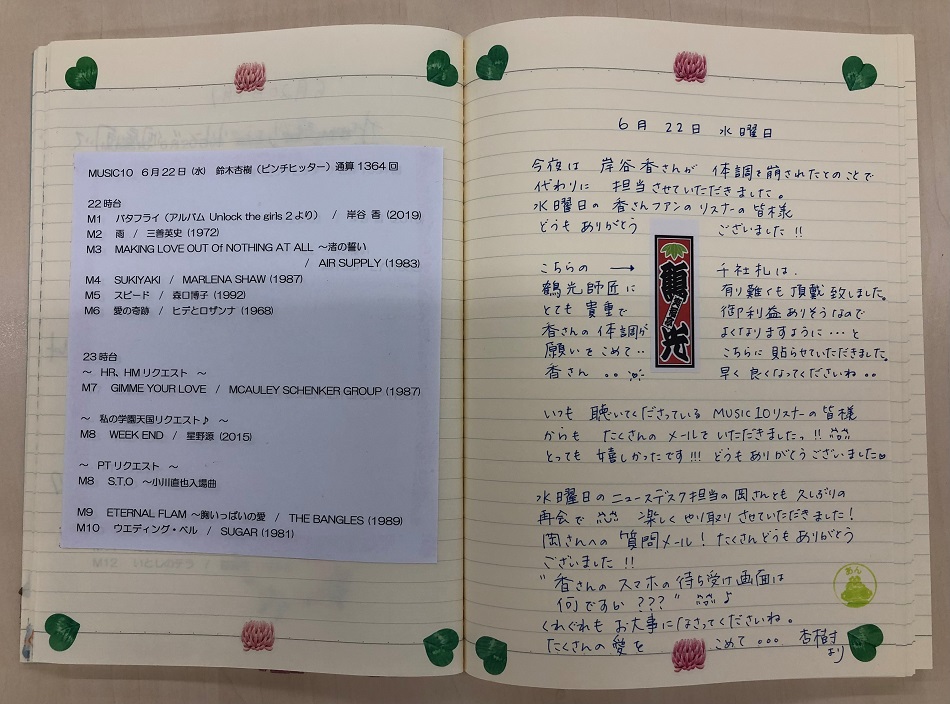 MUSIC10 6月22日(水) 鈴木杏樹(ピンチヒッター)通算1364回
22時台
M1 バタフライ(アルバム Unlock the girls 2より) / 岸谷 香 (2019)
M2 雨 / 三善英史 (1972)
M3 MAKING LOVE OUT Of NOTHING AT ALL ~渚の誓い
/ AIR SUPPLY (1983)
M4 SUKIYAKI / MARLENA SHAW (1987)
M5 スピード / 森口博子 (1992)
M6 愛の奇跡 / ヒデとロザンナ (1968)
23時台
~ HR、HMリクエスト ~
M7 GIMME YOUR LOVE / MCAULEY SCHENKER GROUP (1987)
~ 私の学園天国リクエスト♪ ~
M8 WEEK END / 星野源 (2015)
~ PTリクエスト ~
M8 S.T.O ~小川直也入場曲
M9 ETERNAL FLAM ~胸いっぱいの愛 / THE BANGLES (1989)
M10 ウエディング・ベル / SUGAR (1981)
6月 22日 水曜日
今夜は 岸谷香さんが 体調を崩されたとのことで
代わりに 担当させていただきました。
水曜日の 香さんファンのリスナーの皆様
どうも ありがとう ございました!!
こちらの → 千社札は、
鶴光師匠に 有り難くも 頂戴致しました。
とても 貴重で 御利益ありそうなので
香さんの 体調が よくなりますように…と
願いをこめて‥ こちらに 貼らせていただきました。
香さん 。。 早く 良くなってくださいね。。
いつも 聴いてくださっている MUSIC10リスナーの皆様
からも たくさんの メールを いただきましたっ!!
とっても 嬉しかったです!!! どうもありがとうございました
水曜日のニュースデスク担当の岡さんとも 久しぶりの
再会で 楽しく やり取り させていただきました!
岡さんへの 質問メール! たくさんどうもありがとう
ございました!!
"香さんの スマホの待ち受け画面は
何ですか ???" ♪
くれぐれも お大事になさってくださいね。
たくさんの愛を こめて 。。。 杏樹
より
あん